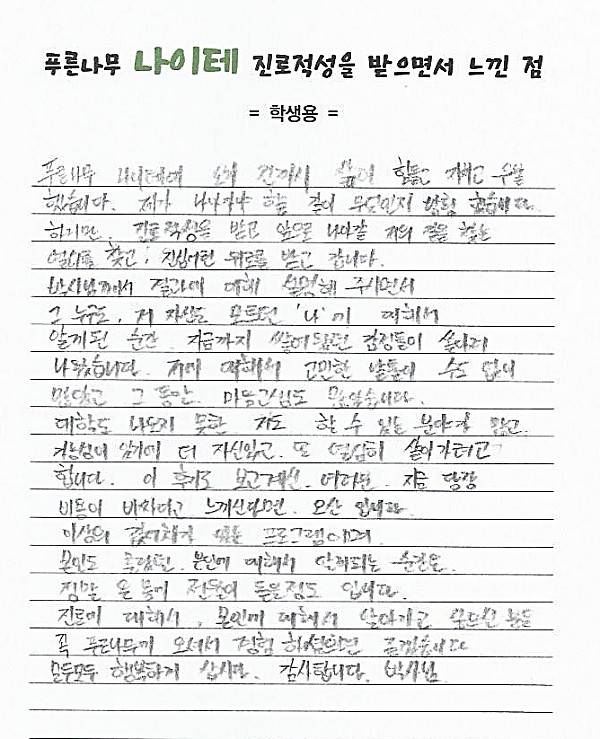 푸른나무 나이테 진로적성을 받으면서 느낀 점
= 학생용 =
푸른나무 나이테에 오기 전까지 삶이 힘들고 지치고 우울
했습니다. 제가 나아가야 할 길이 무엇인지 방황 했습니다.
하지만, 진로적성을 받고 앞으로 나아갈 저의 길을 찾는
열쇠를 찾고, 진심어린 위로를 받고 갑니다.
박사님께서 결과에 대해 설명해 주시면서
그 누구도, 저 자신도 모르던 '나'에 대해서
알게된 순간 지금까지 쌓여있던 감정들이 쏟아져
나왔습니다. 저에 대해서 고민한 날들이 수도 없이
많았고 그 동안 마음고생도 많았습니다.
대학도 나오지 못한 저도 할 수 있는 분야가 많고.
가능성이 있기에 더 자신있고. 또 열심히 살아가려고
합니다. 이 후기를 보고계신. 여러분. 지금 당장
비용이 비싸다고 느끼신다면. 오산 입니다.
이상의 값어치가 있는 프로그램이며.
본인도 몰랐던. 본인에 대해서 알게되는 순간은.
정말 온 몸에 전율이 돋을정도 입니다.
진로에 대해서, 본인에 대해서 알아가고 싶으신 분들
꼭 푸른나무에 오셔서 경험 하셨으면 좋겠습니다
모두모두 행복하게 삽시다. 감사합니다. 박사님